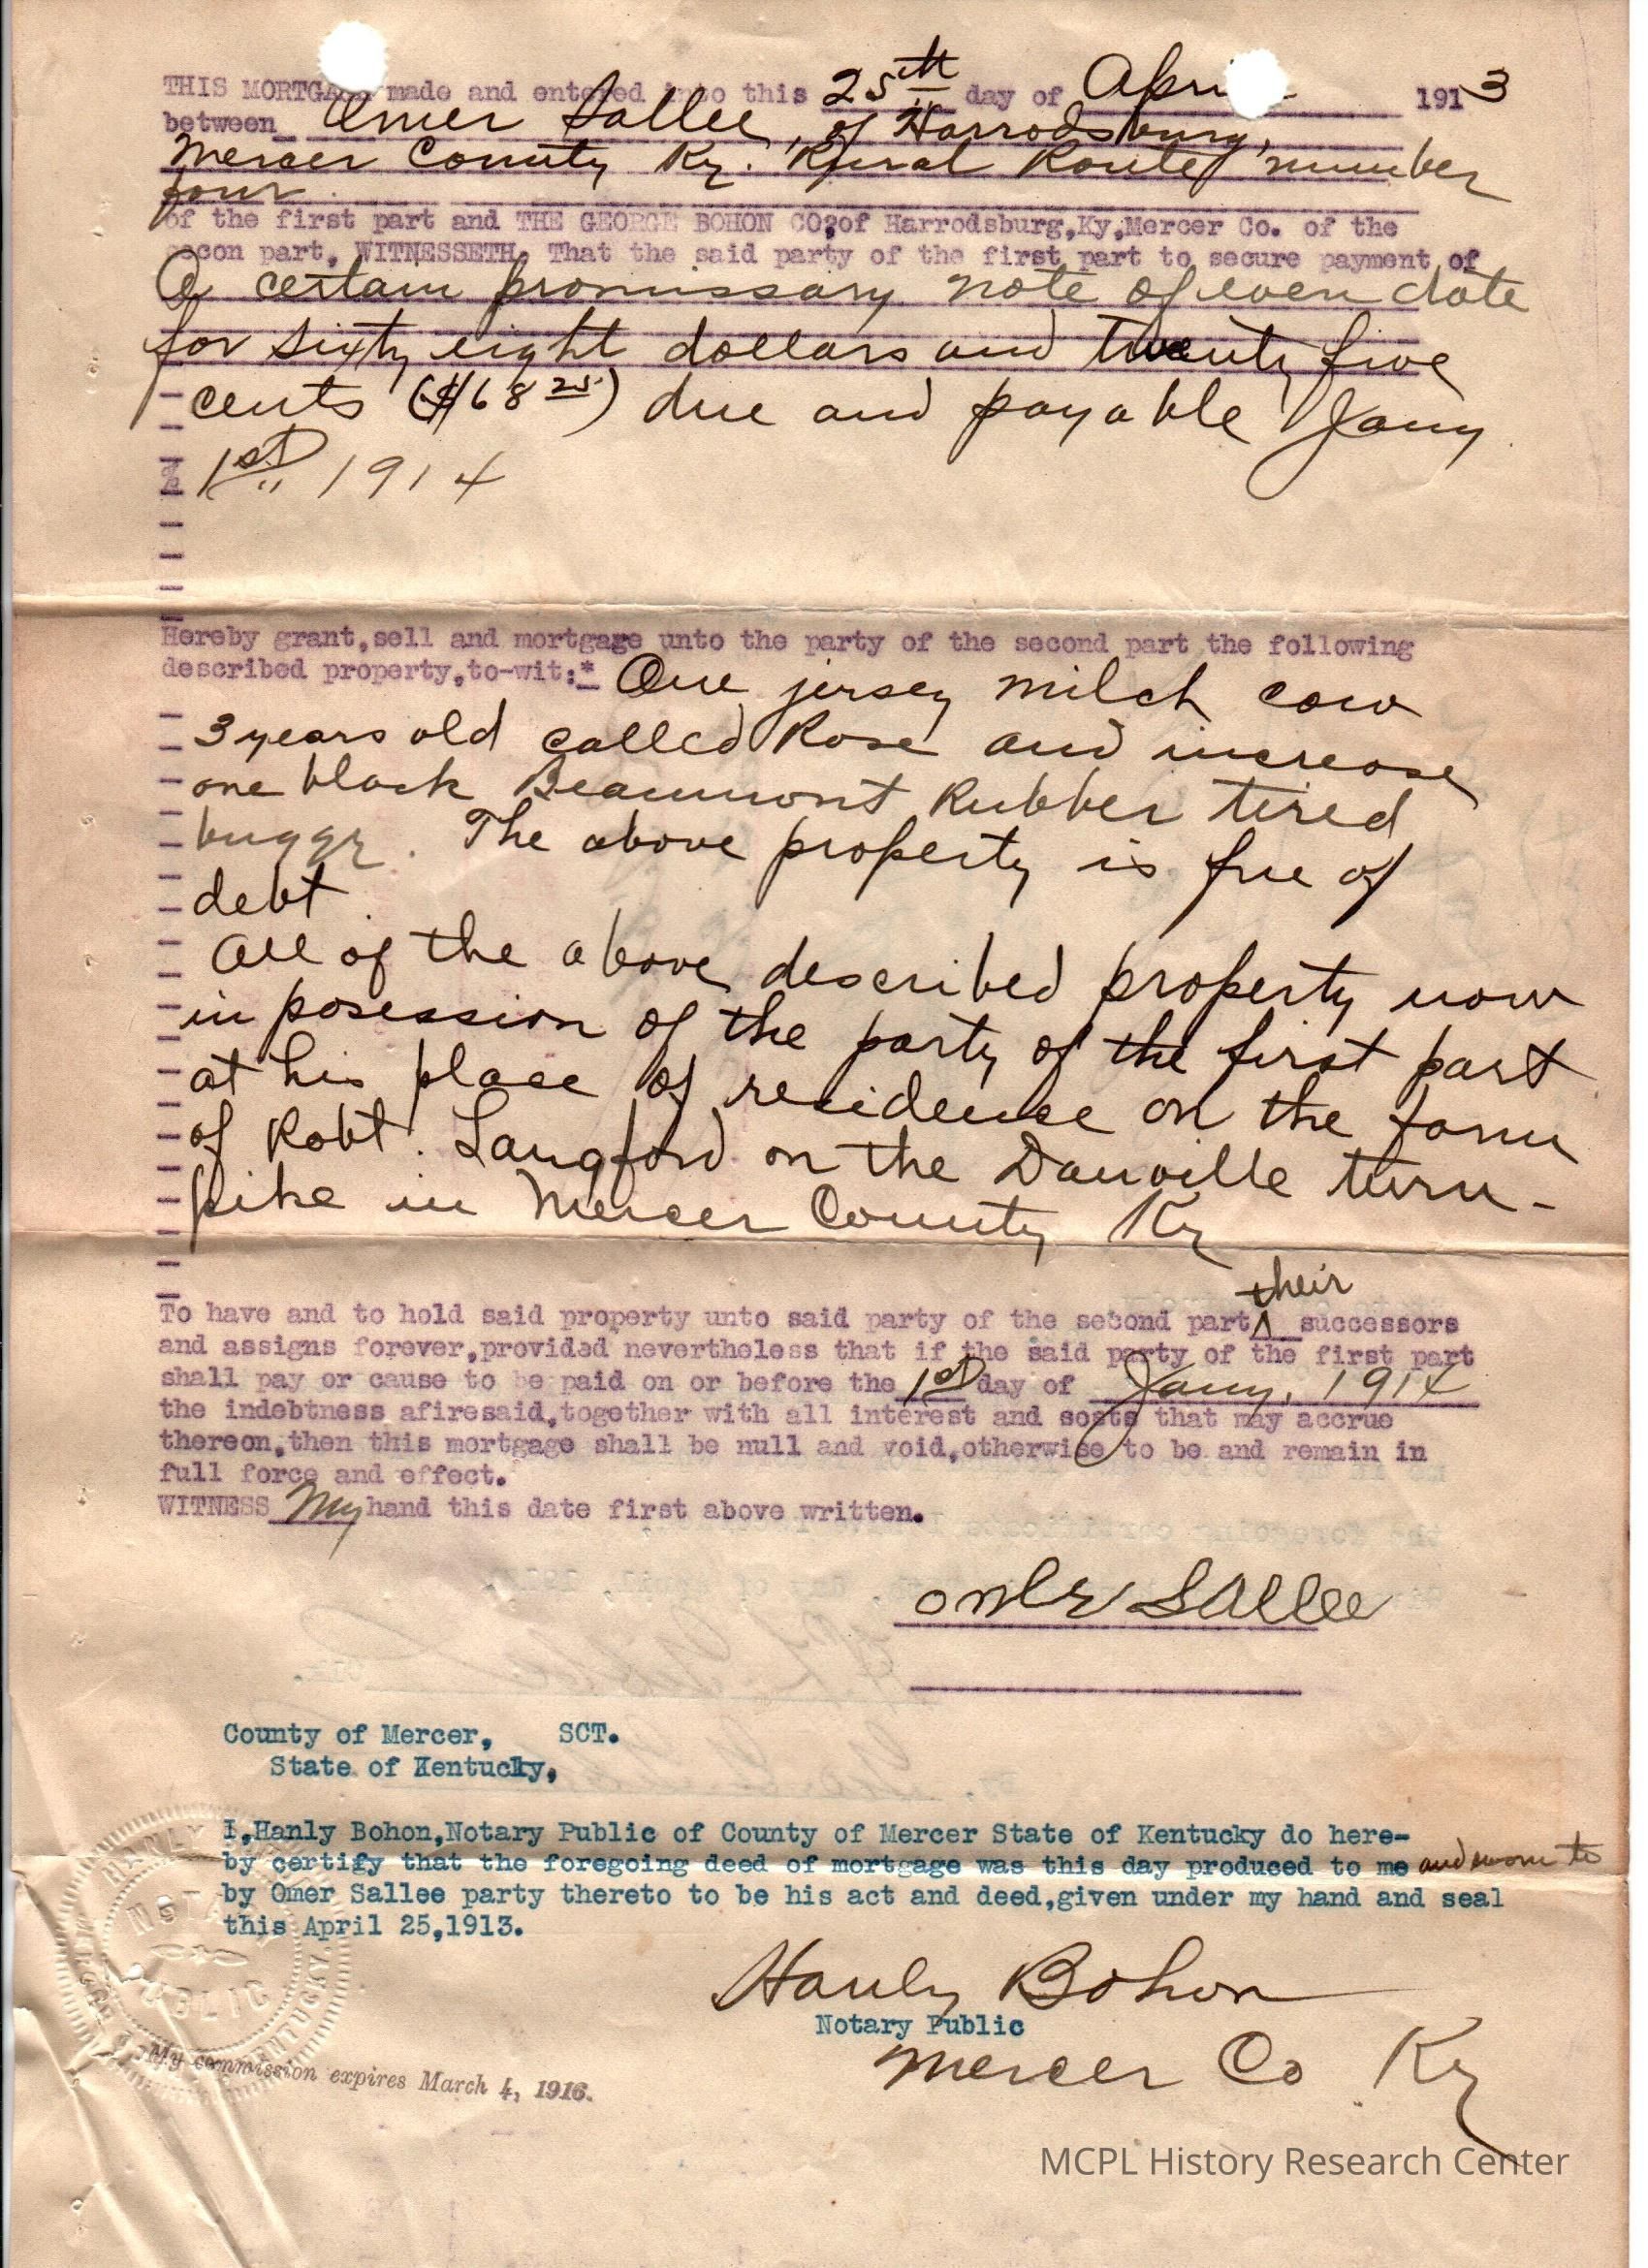 THIS MORTGA made and entered into this 25th day of Apri 1913
between Omer Sallee, of Harrodsburg,
Mercer County Ky. Rural Route number
four
of the first part and THE GEORGE BOHON CO;of Harrodsburg,Ky,Mercer Co. of the
secon part, WITNESSETH, That the said party of the first part to secure payment of
A certain promissary note of even date
for sixty eight dollars and twenty five
cents ($68 25) due and payable Jany
1st 1914
Hereby grant,sell and mortgage unto the party of the second part the following
described property,to-wit:* One jersey milch cow
3 years old called Rose and increase
one black Beaumont Rubber tired
buggy. The above property is free of
debt.
All of the above described property now
in posession of the party of the first part
at his place of residence on the farm
of Robt. Langford on the Danville turn-
pike in Mercer County Ky
their
To have and to hold said property unto said party of the second part^ successors
and assigns forever,provided nevertheless that if the said party of the first part
shall pay or cause to be paid on or before the 1st day of Jany, 1914
the indebtness afiresaid,together with all interest and sosts that may accrue
thereon,then this mortgage shall be null and void,otherwise to be and remain in
full force and effect.
WITNESS My hand this date first above written.
omer SAllee
County of Mercer, SCT.
State of Kentucky,
I,Hanly Bohon,Notary Public of County of Mercer State of Kentucky do here-
by certify that the foregoing deed of mortgage was this day produced to me and sworn to
by Omer Sallee party thereto to be his act and deed,given under my hand and seal
this April 25,1913.
Hanly Bohon
Notary Public
Mercer Co Ky
My commission expires March 4, 1916.
MCPL History Research Center